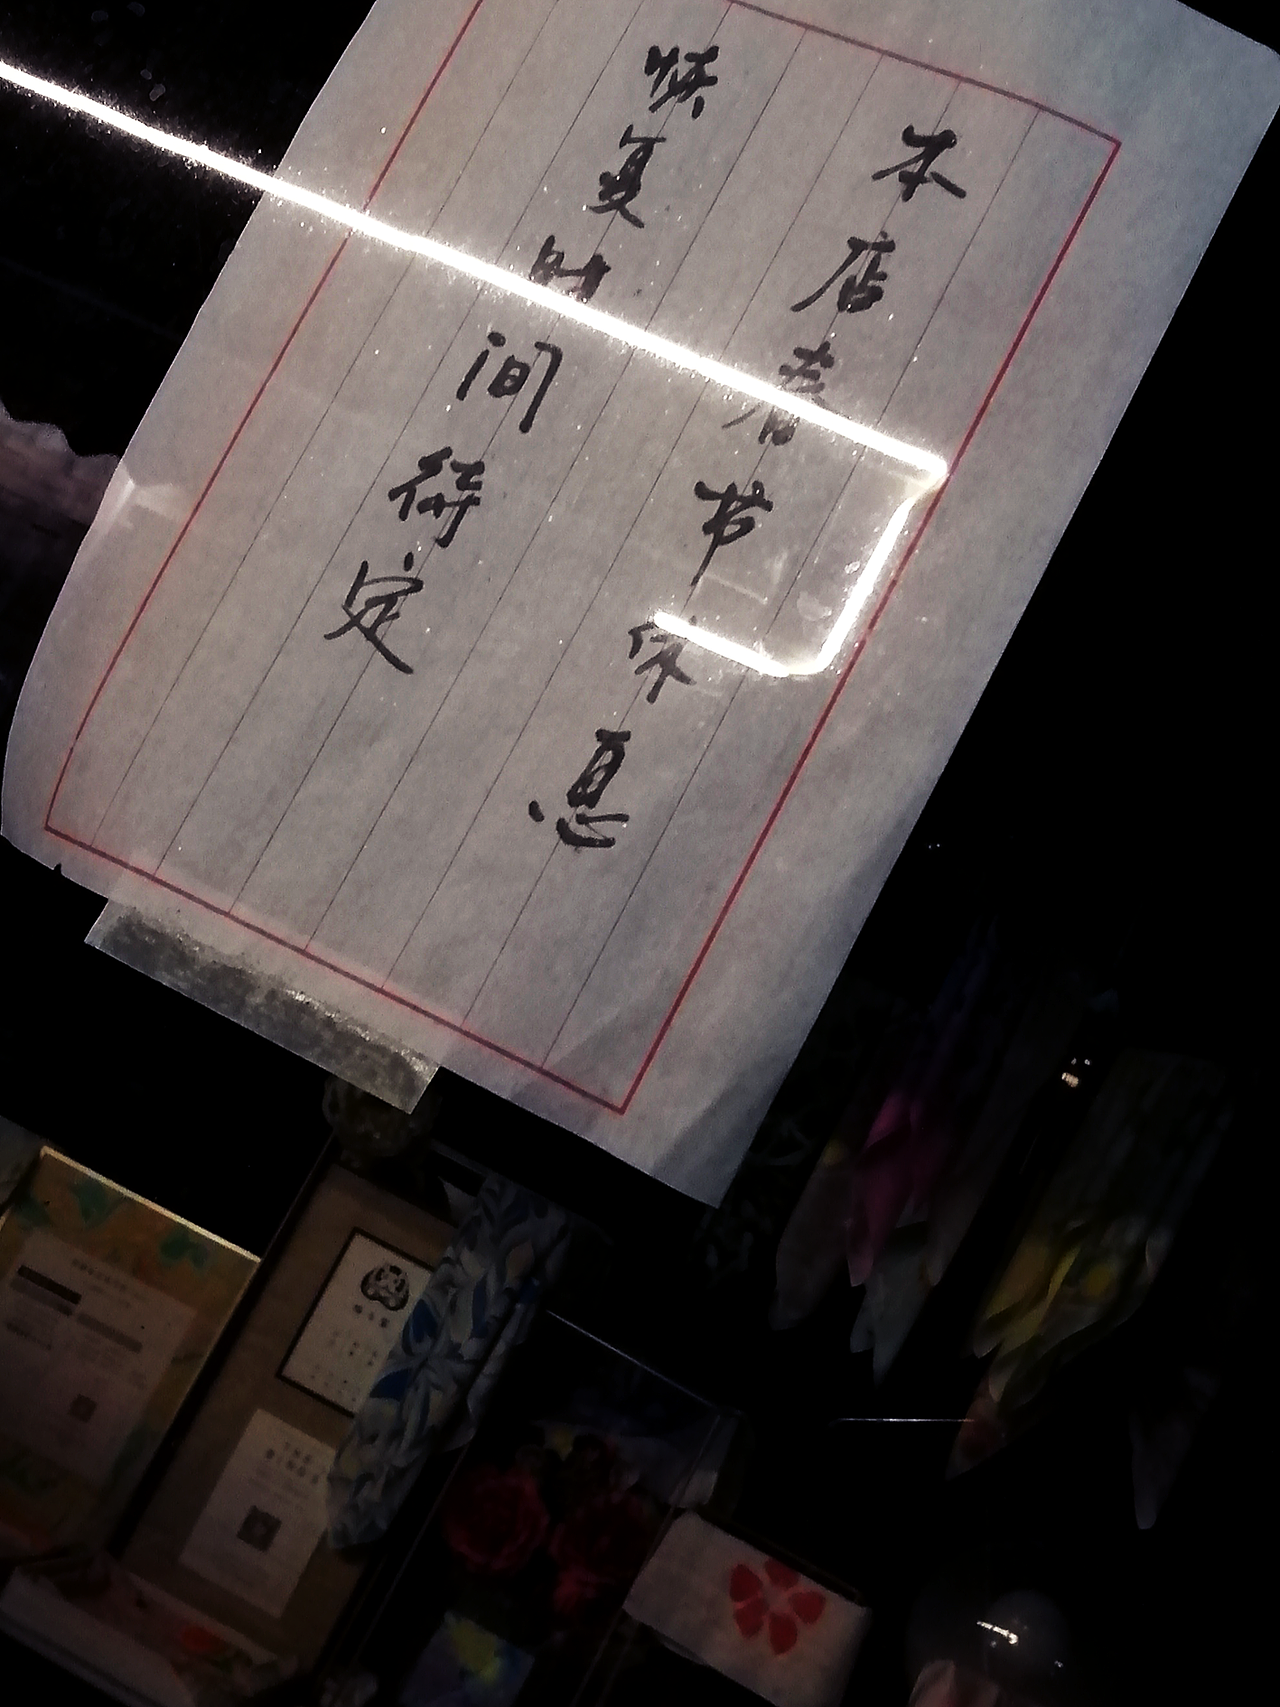 本店春节休息
恢复时间待定